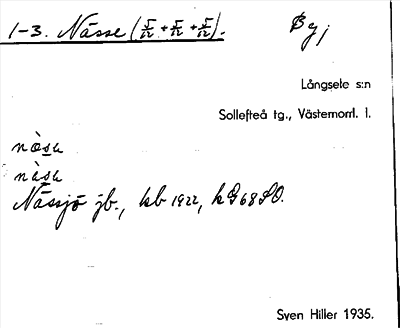 1-3. Nässe (5/12 + 5/12 + 5/12). By
Långsele s:n
Sollefteå tg., Västernorrl. l.
Nässjö jb., kb 1922, k G 68 SO.
Sven Hiller 1935.